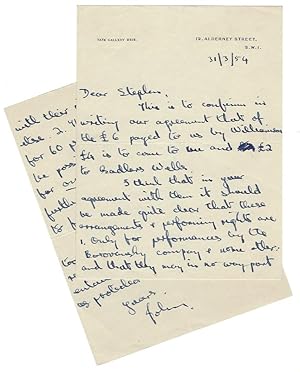 TATE GALLERY
12, ALDERNEY STREET,
S.W.1.
31/3/54
Dear Stephen,
This is to confirm in
writing our agreement that of
the £6 payed to us by Williamson
£4 is to come to me and £2
to Sadlers Wells.
I think that in your
agreement with them it should
be made quite clear that these
arrangements & performing rights are
1. Only for performances by the
Borovansky company & none other.
and that they may in no way part
Yours
John.
with their
else 2.
for 60
be pos
for ou
furth
to
as protected